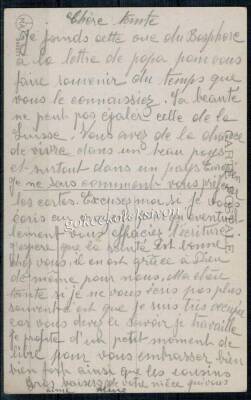 Chère tante
Je joinds cette vue du Bosphore
à la lettre de papa pour vous
faire souvenir du temps que
vous le connaissiez. Sa beauté
ne peut pas égaler celle de la
Suisse. Vous avez de la chance
de vivre dans un beau pays
et surtout dans un pays
je ne sais comment vous
les cartes. Excusez moi si je vous
écris
lement vous effaciez l'écriture
J'espère que la santé est bonne
chez vous, il en est grâce à Dieu
de même pour nous. Ma chère
tante si je ne vous écris pas plus
souvent c'est que je suis très occupée
car vous devez le savoir je travaille
Je profite d'un petit moment de
libre pour vous embrasser bien
bien fort ainsi que les cousins
Gros baisers de votre nièce qui vous
aime
CARTE POSTALE